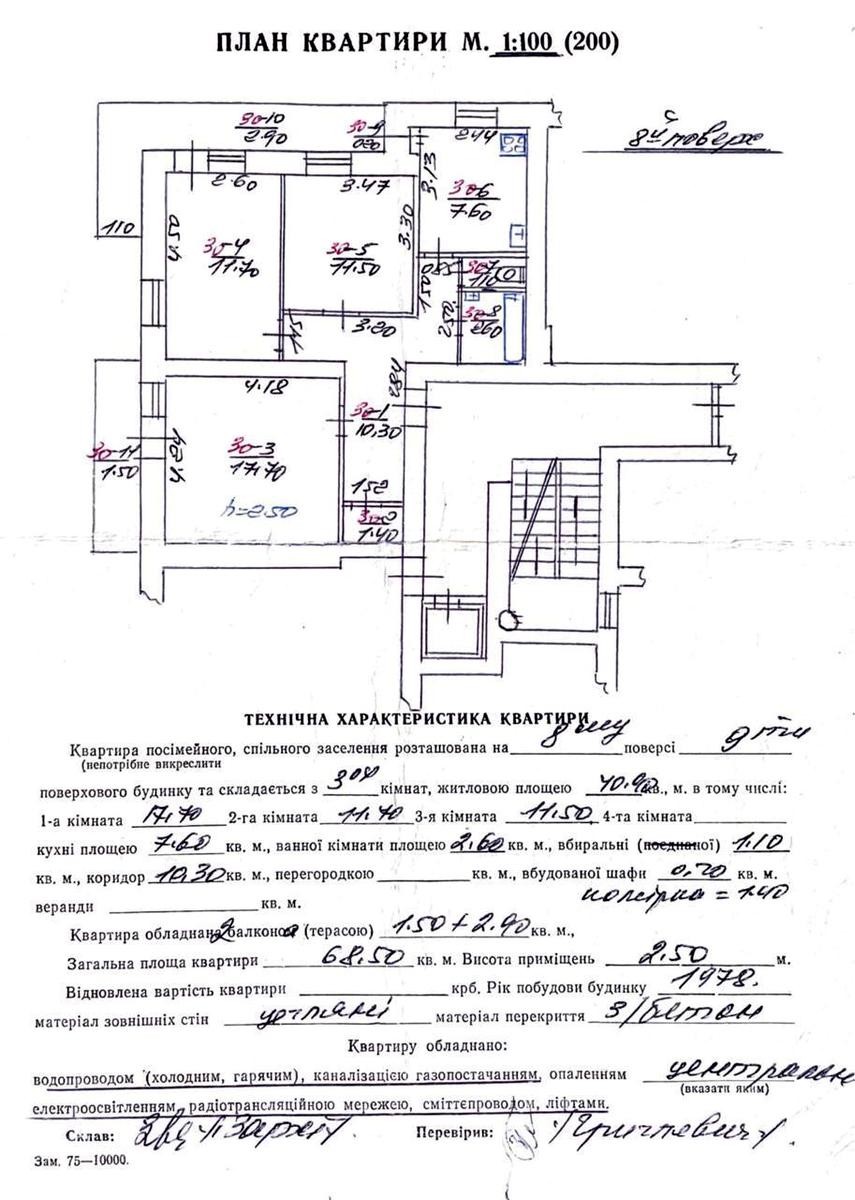 ПЛАН КВАРТИРИ М. 1:100 (200)
8й поверх
30-10
2.90
30-9
0.20
2.44
2.60
3.47
3.13
30-6
7.60
110
4.50
30-4
11.70
30-5
11.50
3.30
0.85
30-7
1.10
1.50
30-8
2.60
2.50
1.15
3.20
4.18
2.84
30-1
10.30
30-11
1.50
4.24
30-3
17.70
h=2.50
152
30-2
1.40
ТЕХНІЧНА ХАРАКТЕРИСТИКА КВАРТИРИ
Квартира посімейного, спільного заселення розташована на 8му поверсі 9ти
(непотрібне викреслити
поверхового будинку та складається з 3ох кімнат, житловою площею 40.90 кв., м. в тому числі:
1-а кімната 17.70 2-га кімната 11.70 3-я кімната 11.50 4-та кімната
кухні площею 7.60 кв. м., ванної кімнати площею 2.60 кв. м., вбиральні (поєднаної) 1.10
кв. м., коридор 10.30 кв. м., перегородкою кв. м., вбудованої шафи 0.20 кв. м.
веранди кв. м. комірка = 1.40
Квартира обладнана 2 балконом (терасою) 1.50 + 2.90 кв. м.,
Загальна площа квартири 68.50 кв. м. Висота приміщень 2.50 м.
Відновлена вартість квартири крб. Рік побудови будинку 1978.
матеріал зовнішніх стін цегляні матеріал перекриття з/бетон
Квартиру обладнано:
водопроводом (холодним, гарячим), каналізацією газопостачанням, опаленням централь
(вказати яким)
електроосвітленням, радіотрансляційною мережею, сміттєпроводом, ліфтами.
Склав: Перевірив:
Зам. 75—10000.